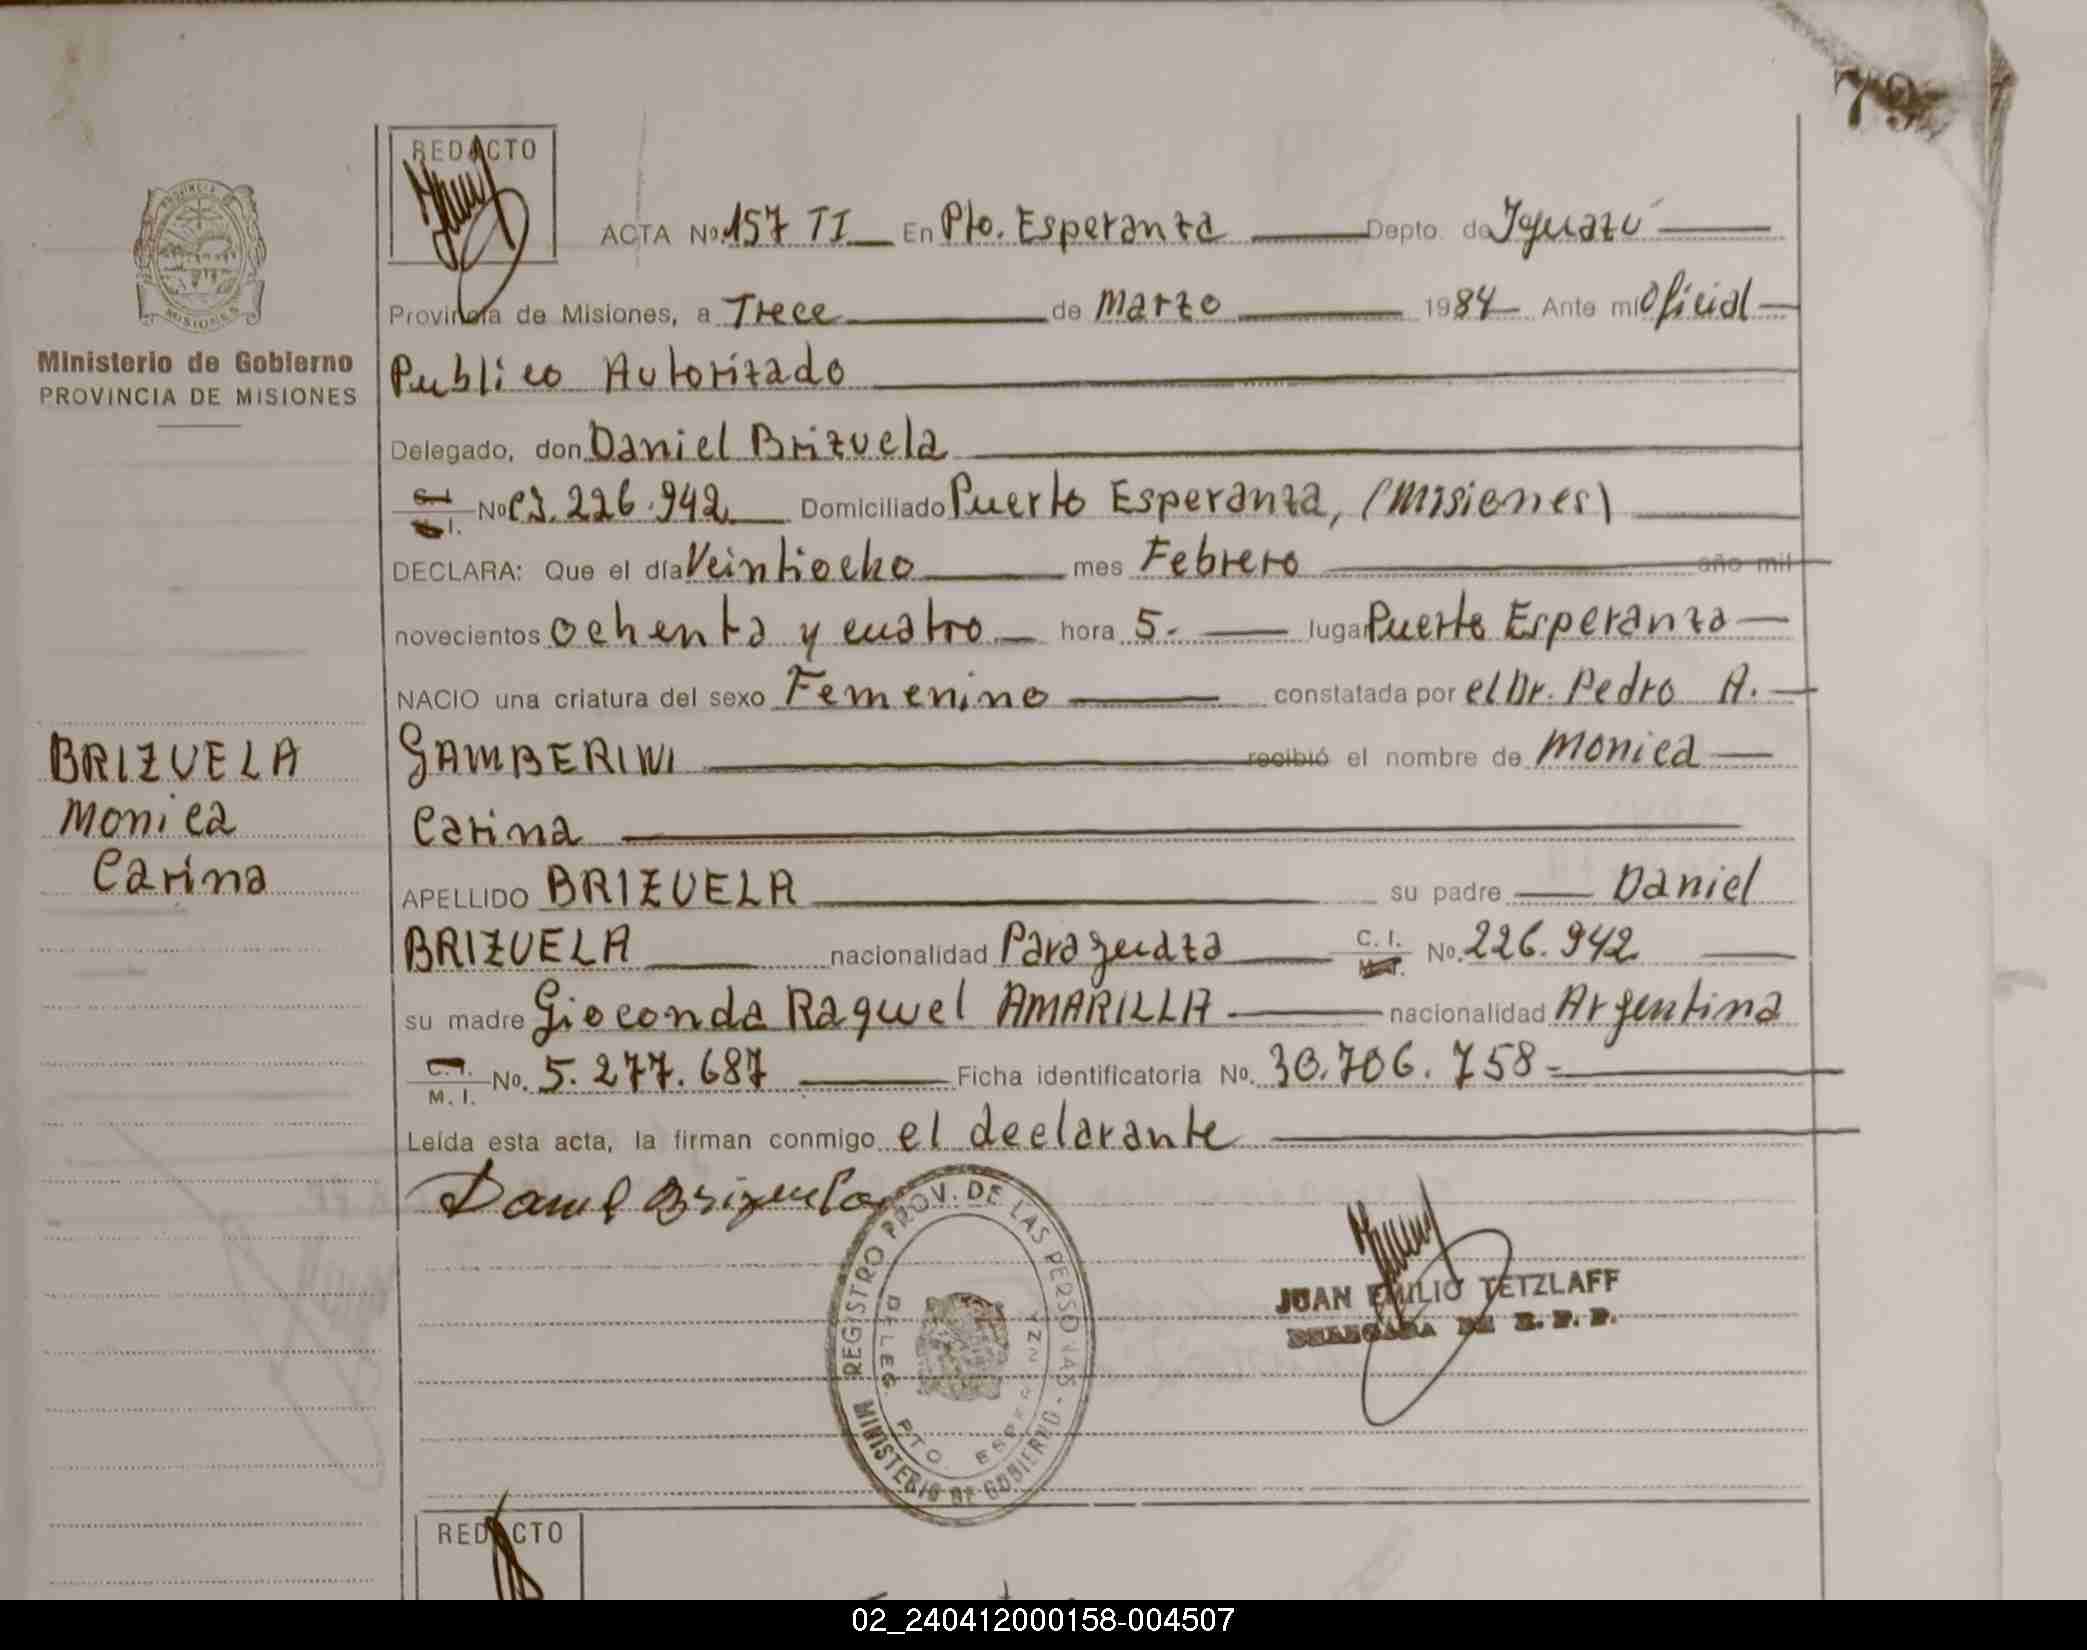 79
REDACTO
ACTA No. 157 TI En Pto. Esperanza Depto. de Iguazú
Provincia de Misiones, a Trece de Marzo 1984 Ante mi Oficial
Publico Autorizado
Delegado, don Daniel Brizuela
C.I. No C.I. 226.942 Domiciliado Puerto Esperanza, (Misiones)
DECLARA: Que el día Veintiocho mes Febrero año mil
novecientos ochenta y cuatro hora 5.- lugar Puerto Esperanza
NACIO una criatura del sexo Femenino constatada por el Dr. Pedro A.
GAMBERINI recibió el nombre de Monica
Carina
APELLIDO BRIZUELA su padre Daniel
BRIZUELA nacionalidad Paraguaya C. I. No. 226.942
su madre Gioconda Raquel AMARILLA nacionalidad Argentina
C.I. M. I. No. 5.277.687 Ficha identificatoria No. 30.706.758-
Leída esta acta, la firman conmigo el declarante
Daniel Brizuela
PROVINCIA DE
MISIONES
Ministerio de Gobierno
PROVINCIA DE MISIONES
BRIZUELA
Monica
Carina
REGISTRO PROV. DE LAS PERSONAS - MINISTERIO DE GOBIERNO
DELEG. PTO. ESPERANZA
JUAN EMILIO TETZLAFF
DELEGADA DE R. P. P.
REDACTO
02_240412000158-004507